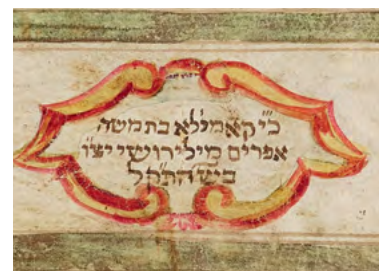 כ״י קאמילא בת משה
אפרים מילירושי יצ״ו
בש התק״ל